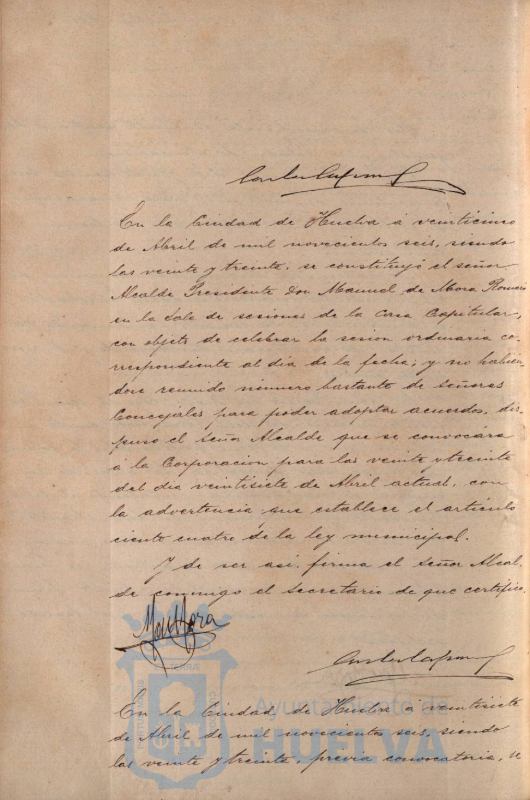 En la Ciudad de Huelva á veinticinco
de Abril de mil novecientos seis, siendo
las veinte y treinta, se constituyó el señor
Alcalde Presidente Don Manuel de Mora Romero
en la Sala de sesiones de la Casa Capitular,
con objeto de celebrar la sesion ordinaria co-
rrespondiente al dia de la fecha; y no habién-
dose reunido número bastante de señores
Concejales para poder adoptar acuerdos, dis-
puso el señor Alcalde que se convocára
á la Corporacion para las veinte y treinta
del dia veintisiete de Abril actual, con
la advertencia que establece el artículo
ciento cuatro de la ley municipal.
Y de ser así, firma el señor Alcal-
de conmigo el secretario de que certifico.
Mora
En la Ciudad de Huelva á veintisiete
de Abril de mil novecientos seis, siendo
las veinte y treinta, previa convocatoria, se
Ayuntamiento de
HUELVA